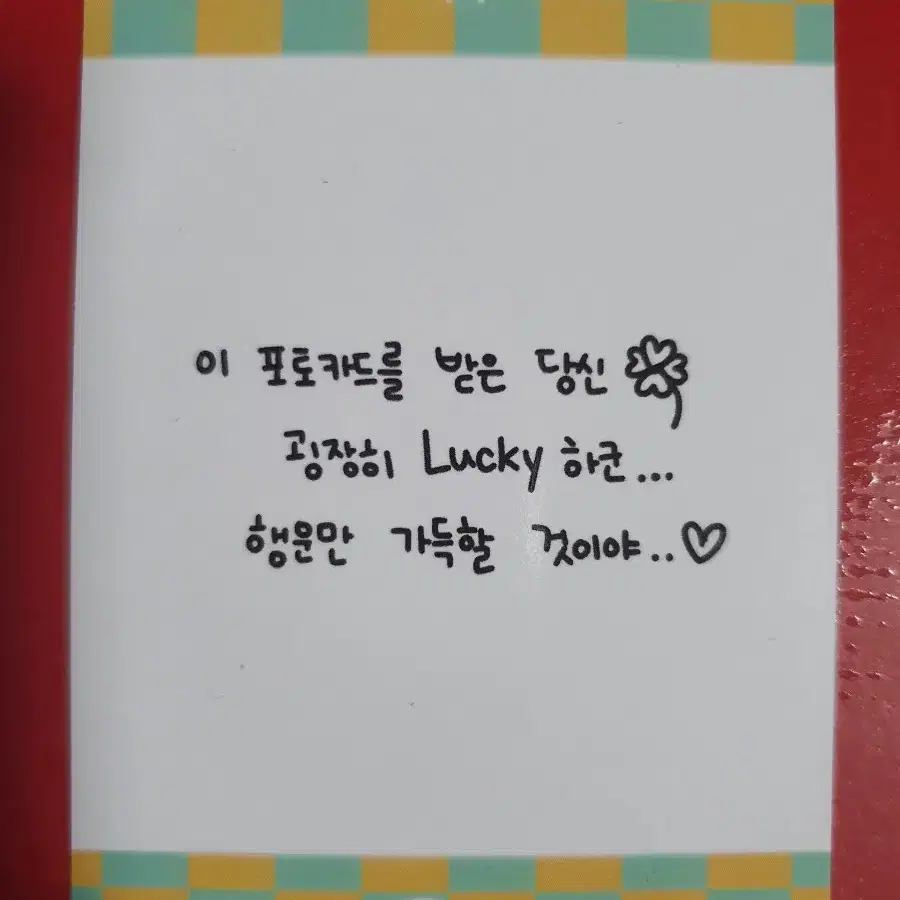 이 포토카드를 받은 당신
굉장히 Lucky 하군...
행운만 가득할 것이야..♡